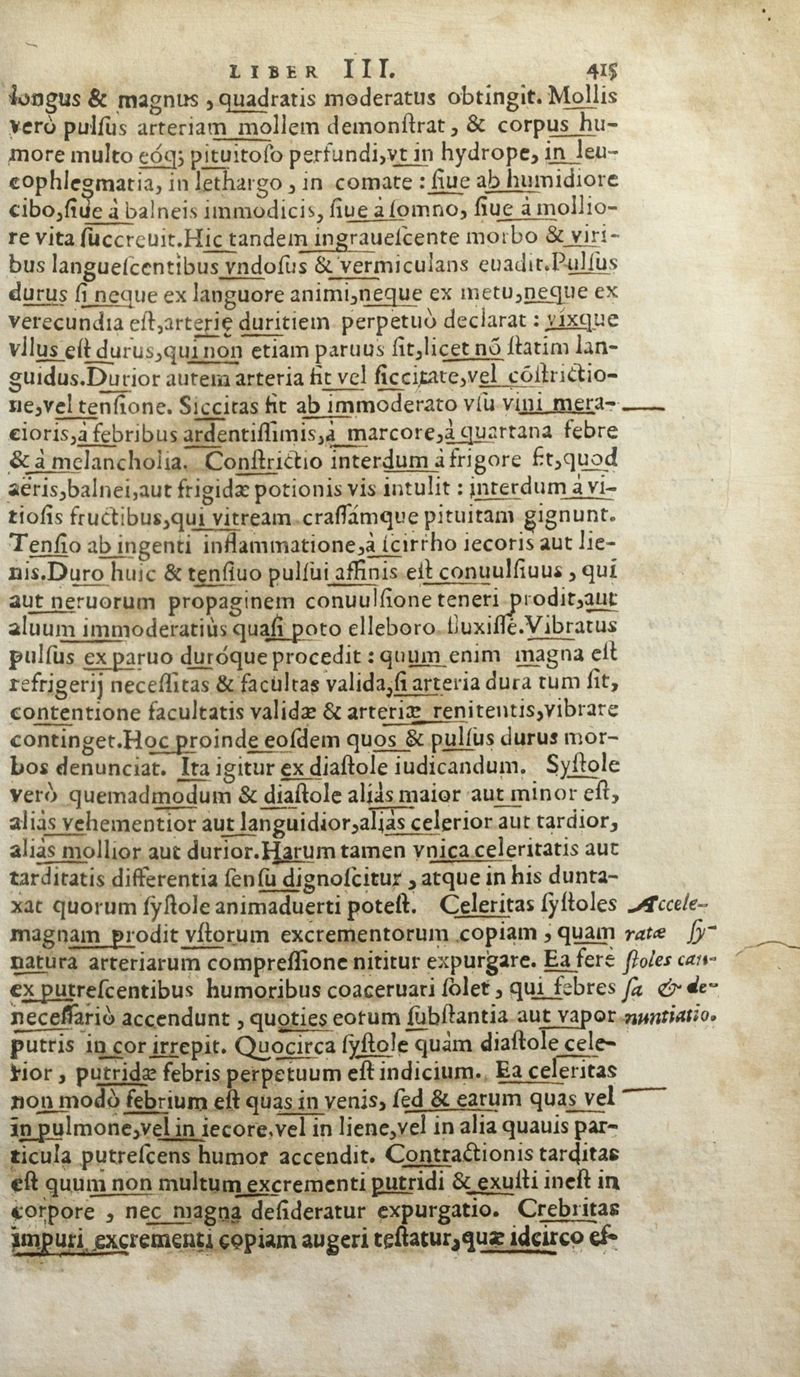 LIBER III. 415
longus & magnus, quadratis moderatus obtingit. Mollis
verò pulſus arteriam mollem demonſtrat, & corpus hu-
more multo eóq; pituitoſo perfundi,vt in hydrope, in leu-
cophlegmatia, in lethargo, in comate: ſiue ab humidiore
cibo,ſiue à balneis immodicis, ſiue à ſomno, ſiue à mollio-
re vita ſuccreuit.Hic tandem ingraueſcente morbo & viri-
bus langueſcentibus vndoſus & vermiculans euadit.Pulſus
durus ſi neque ex languore animi,neque ex metu,neque ex
verecundia eſt,arterię duritiem perpetuò declarat: vixque
vllus eſt durus,qui non etiam paruus ſit,licet nō ſtatim lan-
guidus.Durior autem arteria fit vel ſiccitate,vel cōſtrictio-
ne,vel tenſione. Siccitas fit ab immoderato vſu vini mera-
cioris,à febribus ardentiſſimis,à marcore,à quartana febre
& à melancholia. Conſtrictio interdum à frigore fit,quod
aëris,balnei,aut frigidæ potionis vis intulit: interdum à vi-
tioſis fructibus,qui vitream craſſámque pituitam gignunt.
Tenſio ab ingenti inflammatione,à ſcirrho iecoris aut lie-
nis.Duro huic & tenſiuo pulſui affinis eſt conuulſiuus, qui
aut neruorum propaginem conuulſione teneri prodit,aut
aluum immoderatiùs quaſi poto elleboro fluxiſſe.Vibratus
pulſus ex paruo duróque procedit: quum enim magna eſt
refrigerij neceſſitas & facultas valida,ſi arteria dura tum ſit,
contentione facultatis validæ & arteriæ renitentis,vibrare
continget.Hoc proinde eoſdem quos & pulſus durus mor-
bos denunciat. Ita igitur ex diaſtole iudicandum. Syſtole
verò quemadmodum & diaſtole aliàs maior aut minor eſt,
aliàs vehementior aut languidior,aliàs celerior aut tardior,
aliàs mollior aut durior.Harum tamen vnica celeritatis aut
tarditatis differentia ſenſu dignoſcitur, atque in his dunta-
xat quorum ſyſtole animaduerti poteſt. Celeritas ſyſtoles
magnam prodit vſtorum excrementorum copiam, quam
natura arteriarum compreſſione nititur expurgare. Ea ferè
ex putreſcentibus humoribus coaceruari ſolet, qui febres
neceſſariò accendunt, quoties eorum ſubſtantia aut vapor
putris in cor irrepit. Quocirca ſyſtole quàm diaſtole cele-
rior, putridæ febris perpetuum eſt indicium. Ea celeritas
non modò febrium eſt quas in venis, ſed & earum quas vel
in pulmone,vel in iecore,vel in liene,vel in alia quauis par-
ticula putreſcens humor accendit. Contractionis tarditas
eſt quum non multum excrementi putridi & exuſti ineſt in
corpore, nec magna deſideratur expurgatio. Crebritas
impuri excrementi copiam augeri teſtatur,quæ idcirco ef-
Accele-
ratæ ſy-
ſtoles cau-
ſa & de-
nuntiatio.